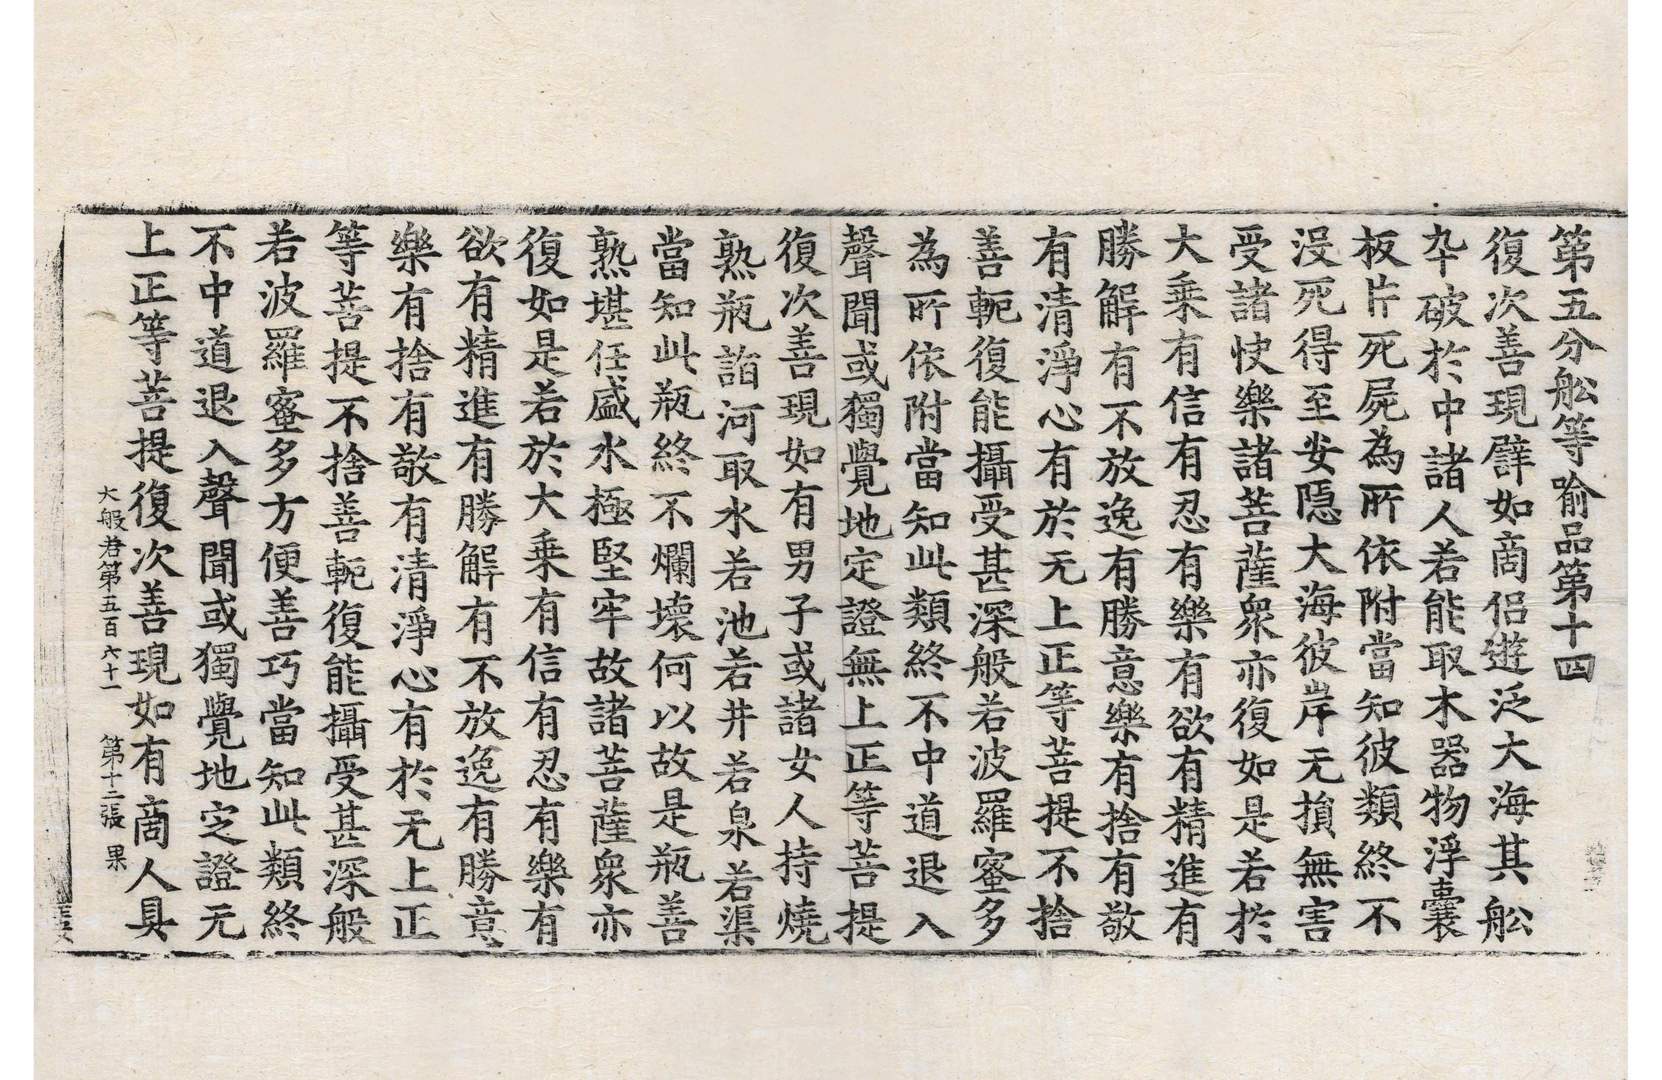 第五分舩等喻品第十四
復次善現譬如商侣遊泛大海其舩
卒破於中諸人若能取木器物浮囊
板片死屍為所依附當知彼類終不
没死得至安隠大海彼岸无損無害
受諸快樂諸菩薩衆亦復如是若於
大乗有信有忍有樂有欲有精進有
勝解有不放逸有勝意樂有捨有敬
有清淨心有於无上正等菩提不捨
善軛復能攝受甚深般若波羅蜜多
為所依附當知此類終不中道退入
聲聞或獨覺地定證無上正等菩提
復次善現如有男子或諸女人持燒
熟瓶詣河取水若池若井若泉若渠
當知此瓶終不爛壞何以故是瓶善
熟堪任盛水極堅牢故諸菩薩衆亦
復如是若於大乗有信有忍有樂有
欲有精進有勝解有不放逸有勝意
樂有捨有敬有清淨心有於无上正
等菩提不捨善軛復能攝受甚深般
若波羅蜜多方便善巧當知此類終
不中道退入聲聞或獨覺地定證无
上正等菩提復次善現如有商人具
大般若第五百六十一 第十二張 果